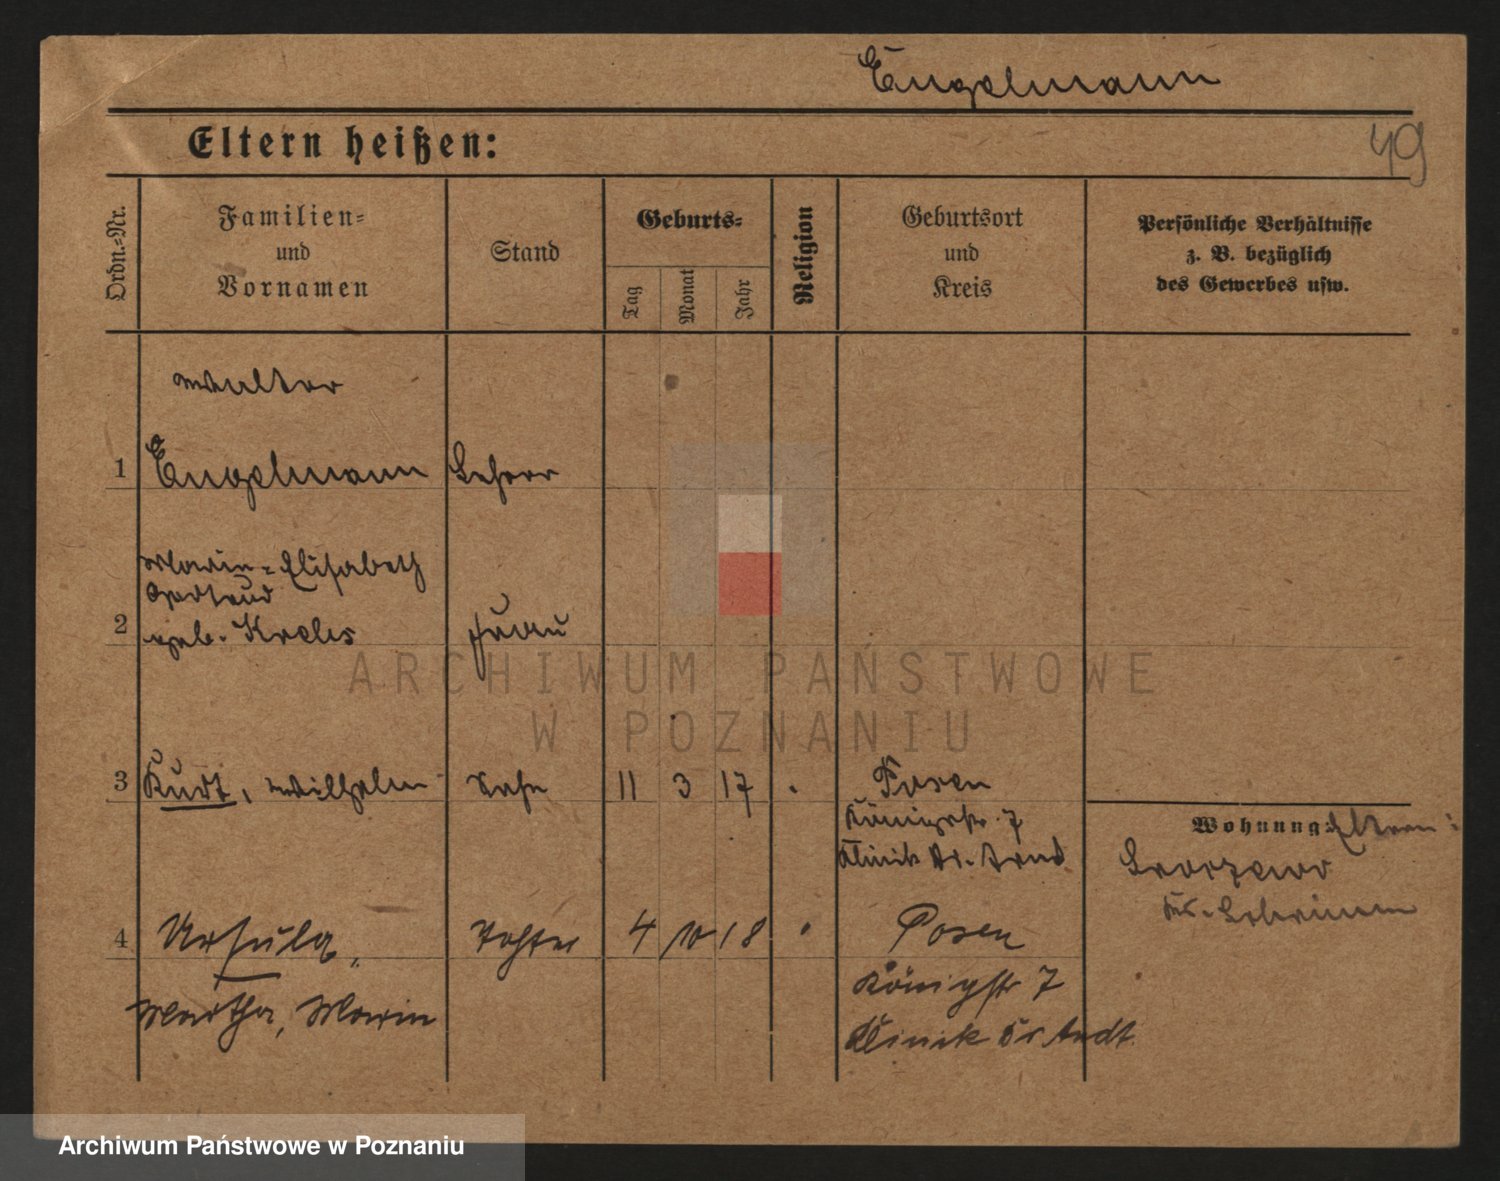 Engelmann
Eltern heißen:
49
Ordn.-Nr.
Familien- und Vornamen
Stand
Geburts-
Tag
Monat
Jahr
Religion
Geburtsort und Kreis
Persönliche Verhältnisse z. B. bezüglich des Gewerbes usw.
Walter
1 Engelmann Lehrer
Marie-Elisabeth
Gertrud
2 geb. Krebs Frau
3 Kurt, Wilhelm Sohn 11 3 17 Posen
Königstr. 7
Klinik Dr.
Wohnung: Eltern:
Kr. Schrimm
4 Ursula, Tochter 4 10 18 Posen
Königstr 7
Martha, Marie
Klinik Dr
ARCHIWUM PAŃSTWOWE
W POZNANIU
Archiwum Państwowe w Poznaniu